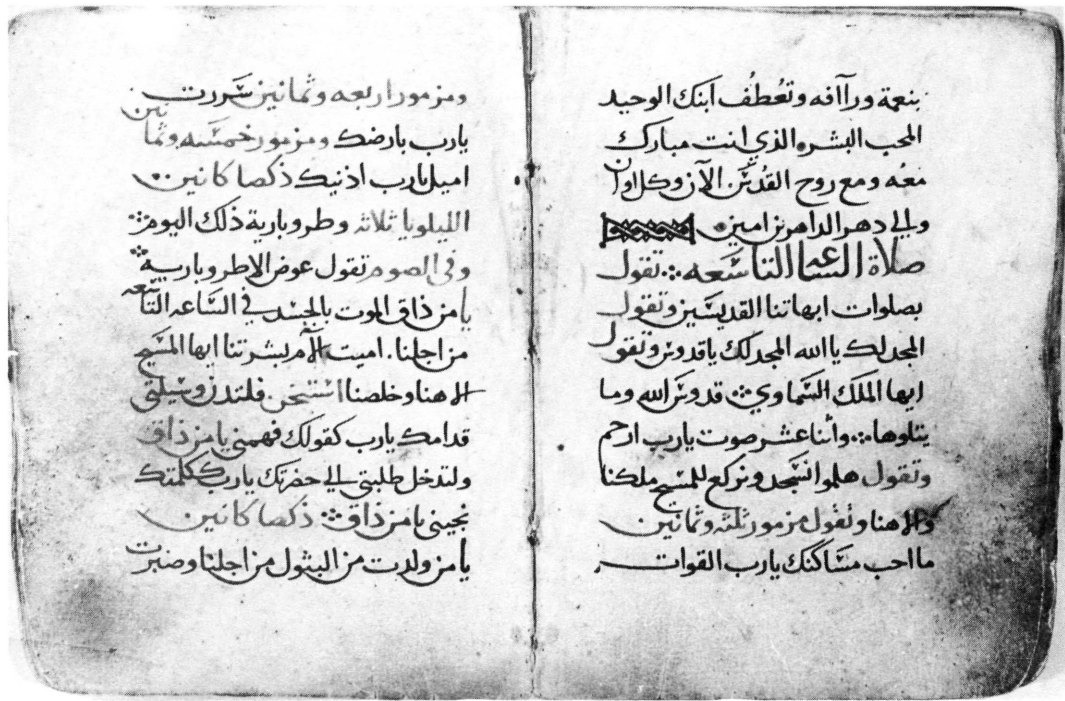 بنعمة وراافه وتعُطفُ ابنك الوحيد
المحب البشره الذي انت مبارك
معُه ومع روح القُدسُ الآن وكل اوان
والي دهر الداهرين امين
صلاة الساعه التاسعه تقول
بصلوات ابهاتنا القديسين وتقول
المجد لك يا الله المجد لك يا قدوس وتقول
ايها الملك السماوي قدوس الله وما
يتلوها وأثنا عشر صوت يارب ارحم
وتقول هلموا نسجد ونركع للمسيح ملكنا
والاهنا وتقول مزمور ثلثه وثمانين
ما احب مساكنك يارب القوات
ومزمور اربعه وثمانين سررت
يارب بارضك ومزمور خمسه وثمانين
اميل يارب اذنيك ذكصا كانين
الليلويا ثلاثه وطروبارية ذلك اليوم
وفي الصوم تقول عوض الاطروبارية
يا من ذاق الموت بالجسد في الساعه التاسعه
من اجلنا. اميت الآم بشرتنا ايها المسيح
الاهنا وخلصنا استيخن فلتدن وسيلتي
قدامك يارب كقولك فهمني يا من ذاق
ولتدخل طلبتي الي حضرتك يارب ككلمتك
نجيني يا من ذاق ذكصا كانين
يا من ولدت من البتول من اجلنا وصبرت